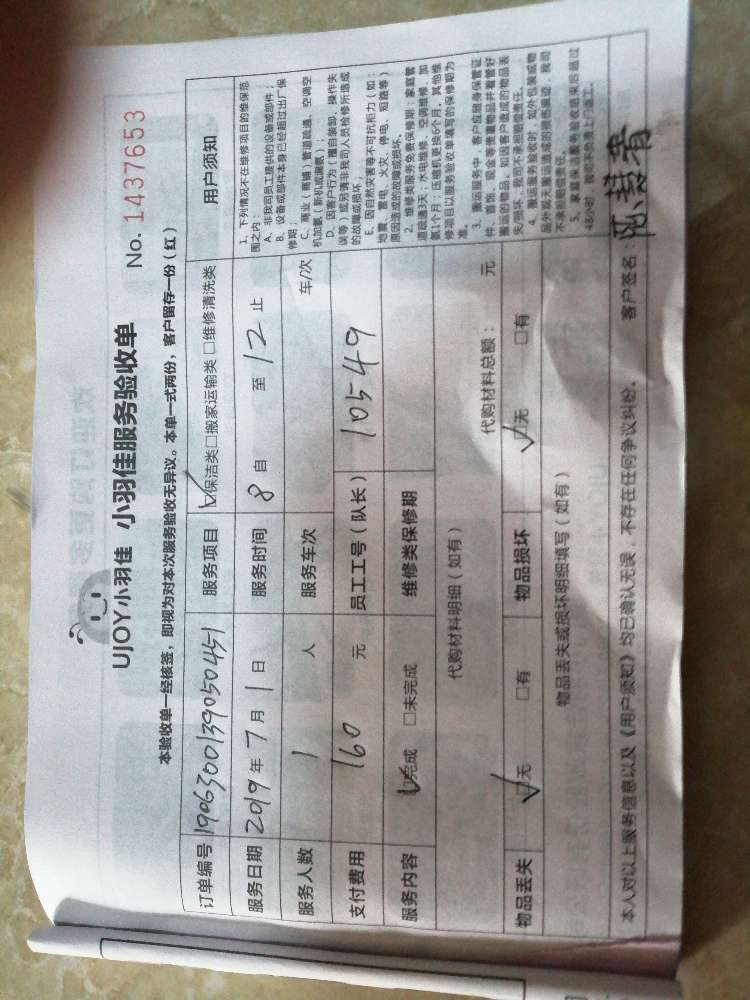 UJOY小羽佳 小羽佳服务验收单
No. 1437653
本验收单一经核签，即视为对本次服务验收无异议。本单一式两份，客户留存一份（红）
订单编号 1906300139050451 服务项目 保洁类 □搬家运输类 □维修清洗类 用户须知
服务日期 2019年7月1日 服务时间 8自 至 12止
服务人数 1 人 服务车次 车/次
支付费用 160 元 员工工号（队长） 10549
服务内容 完成 □未完成 维修类保修期
代购材料明细（如有） 代购材料总额： 元
物品丢失 无 □有 物品损坏 无 □有
物品丢失或损坏明细填写（如有）
1、下列情况不在维修项目的维保范
围之内：
A、非我司员工提供的设备或部件；
B、设备或部件本身已经超过出厂保
修期；
C、商业（商铺）管道疏通、空调空
机加氨（新机或漏氨）；
D、因客户行为（擅自装卸、操作失
误等）或另请非我司人员检修所造成
的故障或损坏；
E、因自然灾害等不可抗拒力（如：
地震、雷电、火灾、停电、短路等）
原因造成的故障或损坏。
2、维修类服务免费保修期：家庭管
道疏通3天；水电维修、空调维修、加
氨1个月；压缩机更换6个月，其他维
修项目以服务验收单填写的保修期为
准。
3、搬运服务中，客户应随身保管证
件、首饰、现金等贵重物品并看管好
搬运的物品，如因客户造成的物品丢
失/损坏，我司不承担赔偿责任。
4、搬运服务验收时，如外包装或物
不承担赔偿责任。
本人对以上服务信息以及《用户须知》均已确认无误，不存在任何争议纠纷。 客户签名：